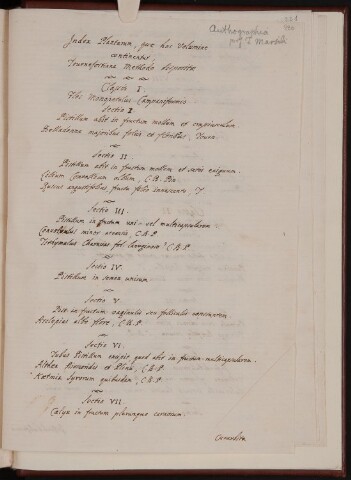 Index Plantarum, quae hoc Volumine
continentur,
Tournefortiana Methodo dispositae
Classis I.
Flos Monopetalus Campaniformis
Sectio I.
Pistillum abit in fructum mollem et
Belladonna majoribus foliis et floribus, Tourn.
Sectio II.
Pistillum abit in fructum mollem et satis exiguum.
Lilium Convallium album, C.B. Pin.
Ruscus angustifolius, fructu folio innascente, T
Sectio III.
Pistillum in fructum uni- vel multicapsularem
Convolvulus minor arvensis, C.B.P.
Tithymalus Characias fol. C.B.P
Sectio IV.
Pistillum in semen unicum.
Sectio V.
in fructum vaginalis seu folliculis concinnatum
Asclepias albo flore, C.B.P
Sectio VI.
Tubus Pistillum excipit, quod abit in fructum multicapsularem.
Althea Dioscoridis et Plinii, C.B.P
Ketmia Syrorum quibusdam, C.B.P
Sectio VII.
Calyx in fructum plerumque carnosum.